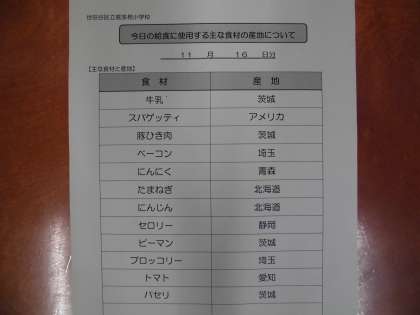 今日の給食に使用する主な食材の産地について
11 月 16 日分
【主な食材と産地】
食材 産地
牛乳 茨城
スパゲッティ アメリカ
豚ひき肉 茨城
ベーコン 埼玉
にんにく 青森
たまねぎ 北海道
にんじん 北海道
セロリー 静岡
ピーマン 茨城
ブロッコリー 埼玉
トマト 愛知
パセリ 茨城